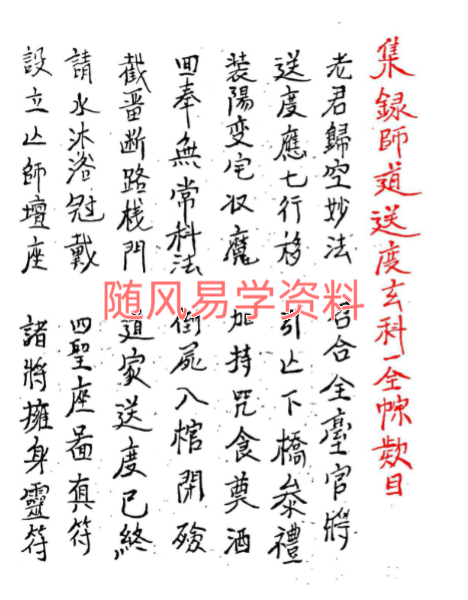 集録師道送度玄科一全㡾欵目
老君歸空妙法 召合全臺官將
送度應七行移 引上下橋叅禮
装陽变宅収魔 加持咒食奠酒
回奉無常科法 倒屍入棺閉殮
截畨断路栈門 道家送度已終
請水沐浴冠戴 四聖座啚真符
設立上師壇座 諸將擁身靈符
随风易学资料